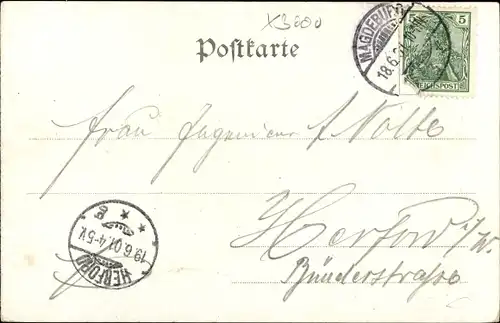 X3600
Postkarte
MAGDEBURG
18.6.
5 5
REICHSPOST
Frau Ingenieur Nolte
Herford i/W.
Bünderstrasse
HERFORD
19.6.01.4-5V.